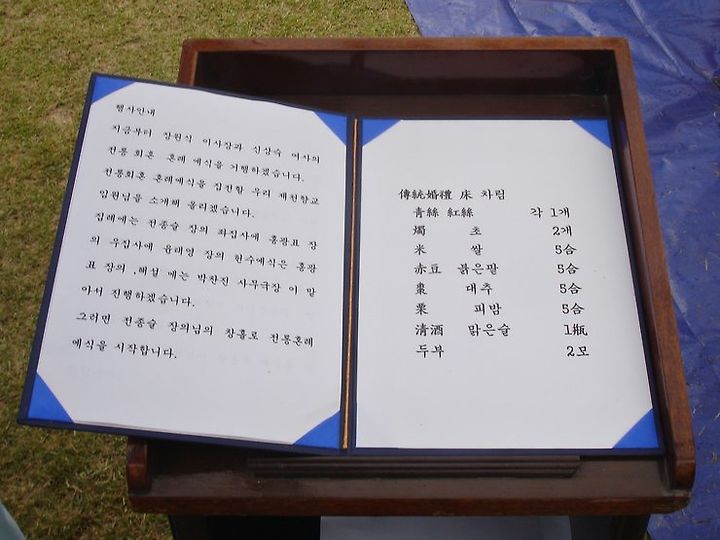 행사안내
지금부터 장원식 이사장과 신상숙 여사의
전통 회혼 혼례 예식을 거행하겠습니다.
전통회혼 혼례예식을 집전할 우리 제천향교
임원님을 소개해 올리겠습니다.
집례에는 전종술 장의 좌집사에 홍광표 장
의 우집사에 윤태영 장의 헌수예식은 홍광
표 장의 ,해설 에는 박찬진 사무국장 이 맡
아서 진행하겠습니다.
그러면 전종술 장의님의 창홀로 전통혼례
예식을 시작합니다.
傳統婚禮 床 차림
青絲 紅絲 각 1개
燭 초 2개
米 쌀 5合
赤豆 붉은팥 5合
棗 대추 5合
栗 피밤 5合
清酒 맑은술 1甁
두부 2모